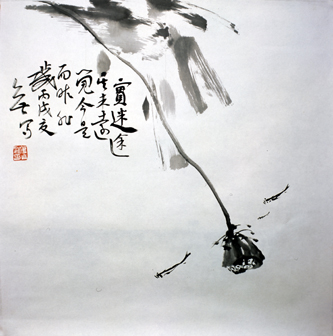 實迷途
其未遠
覺今是
而昨非
歲丙戌夏
写